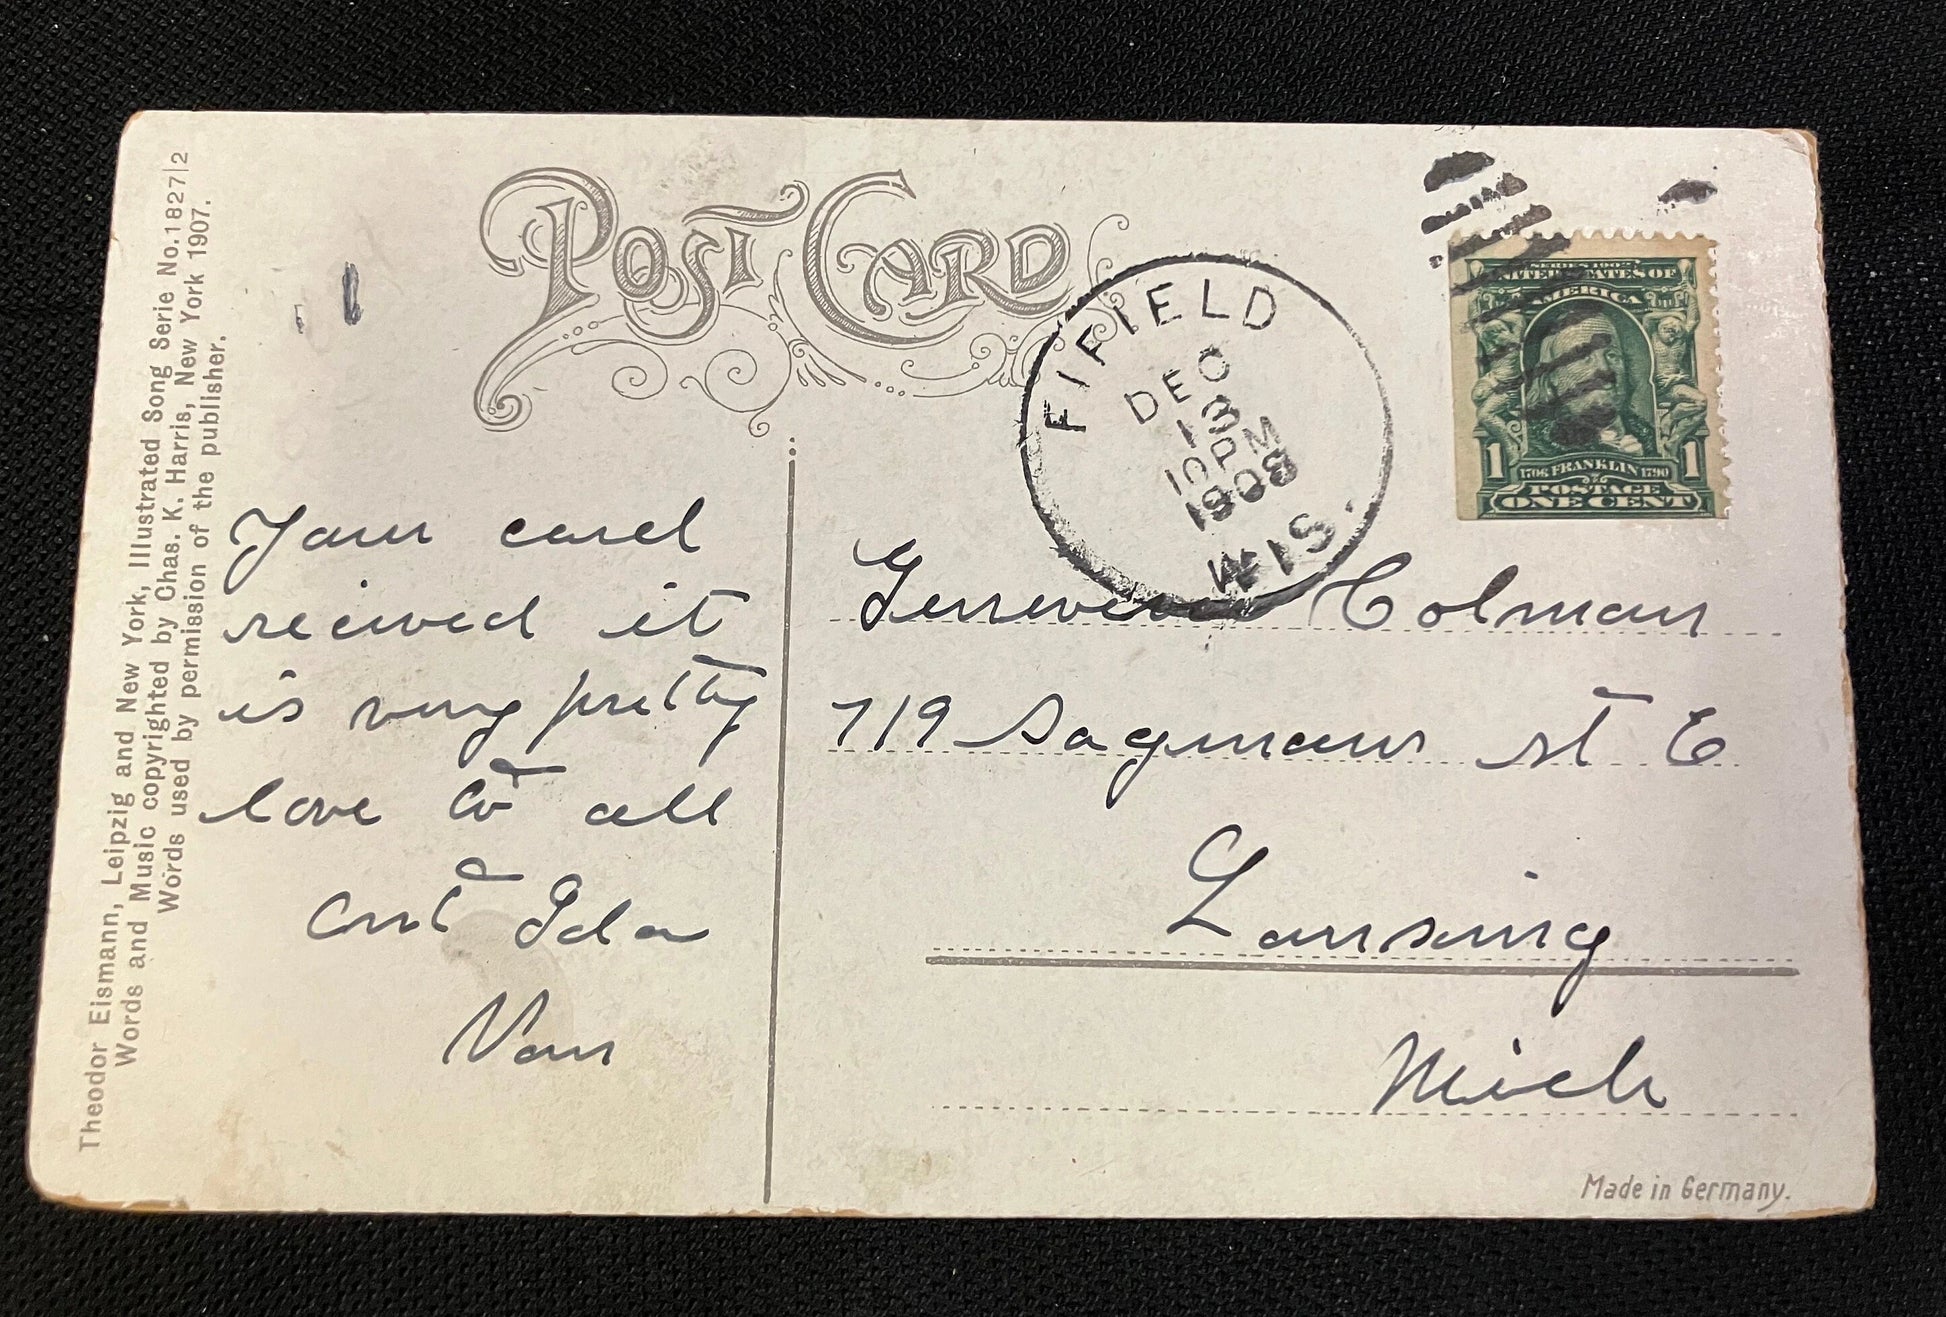 Theodor Eismann, Leipzig and New York, Illustrated Song Serie No. 1827|2
Words and Music copyrighted by Chas. K. Harris, New York 1907.
Words used by permission of the publisher.
POST CARD
FIFIELD
DEC
13
10 PM
1908
WIS.
SERIES 1902
UNITED STATES OF
AMERICA
1 1706 FRANKLIN 1790 1
POSTAGE
ONE CENT
Your card
recived it
is very pretty
love to all
Ant Ida
Van
Genevieve Colman
719 Sagmaw st E
Lansing
Mich
Made in Germany.